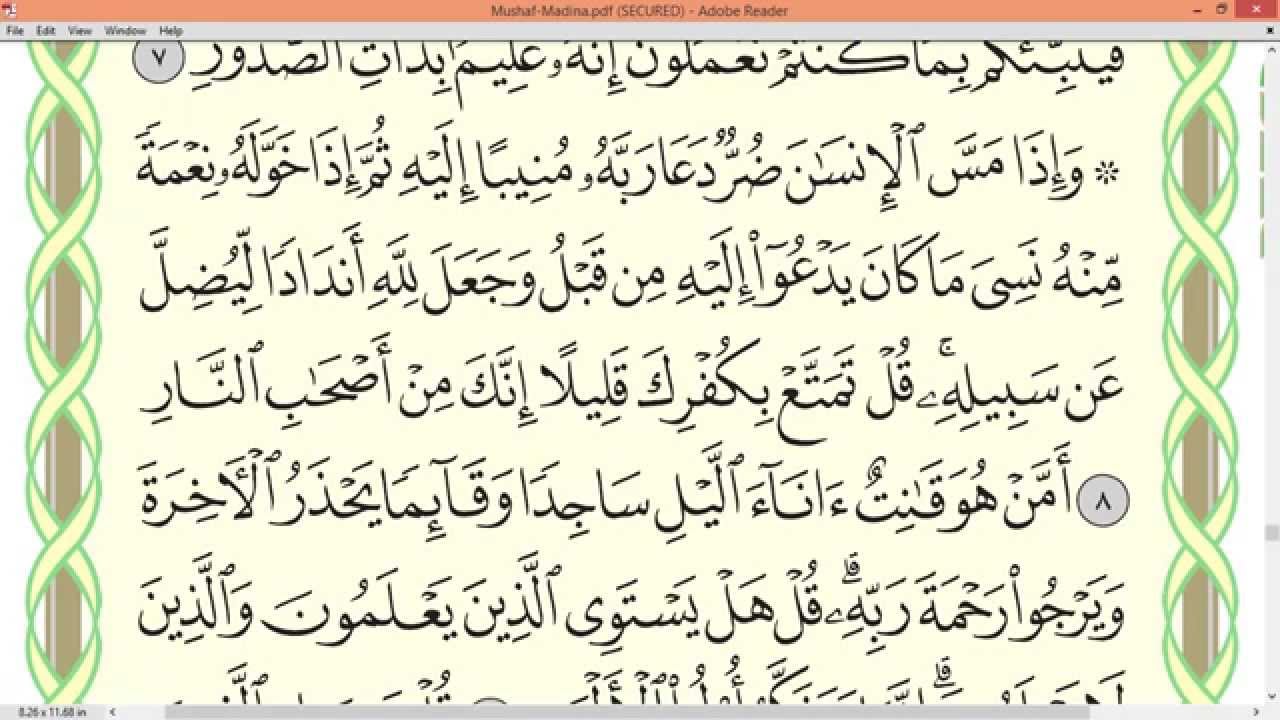 Mushaf-Madina.pdf (SECURED) - Adobe Reader
File Edit View Window Help
فَيُنَبِّئُكُم بِمَا كُنتُمْ تَعْمَلُونَ إِنَّهُۥ عَلِيمٌۢ بِذَاتِ ٱلصُّدُورِ ٧
۞ وَإِذَا مَسَّ ٱلْإِنسَٰنَ ضُرٌّ دَعَا رَبَّهُۥ مُنِيبًا إِلَيْهِ ثُمَّ إِذَا خَوَّلَهُۥ نِعْمَةً
مِّنْهُ نَسِىَ مَا كَانَ يَدْعُوٓا۟ إِلَيْهِ مِن قَبْلُ وَجَعَلَ لِلَّهِ أَندَادًا لِّيُضِلَّ
عَن سَبِيلِهِۦ ۚ قُلْ تَمَتَّعْ بِكُفْرِكَ قَلِيلًا إِنَّكَ مِنْ أَصْحَٰبِ ٱلنَّارِ
٨ أَمَّنْ هُوَ قَٰنِتٌ ءَانَآءَ ٱلَّيْلِ سَاجِدًا وَقَآئِمًا يَحْذَرُ ٱلْءَاخِرَةَ
وَيَرْجُوا۟ رَحْمَةَ رَبِّهِۦ ۗ قُلْ هَلْ يَسْتَوِى ٱلَّذِينَ يَعْلَمُونَ وَٱلَّذِينَ
8.26 x 11.68 in